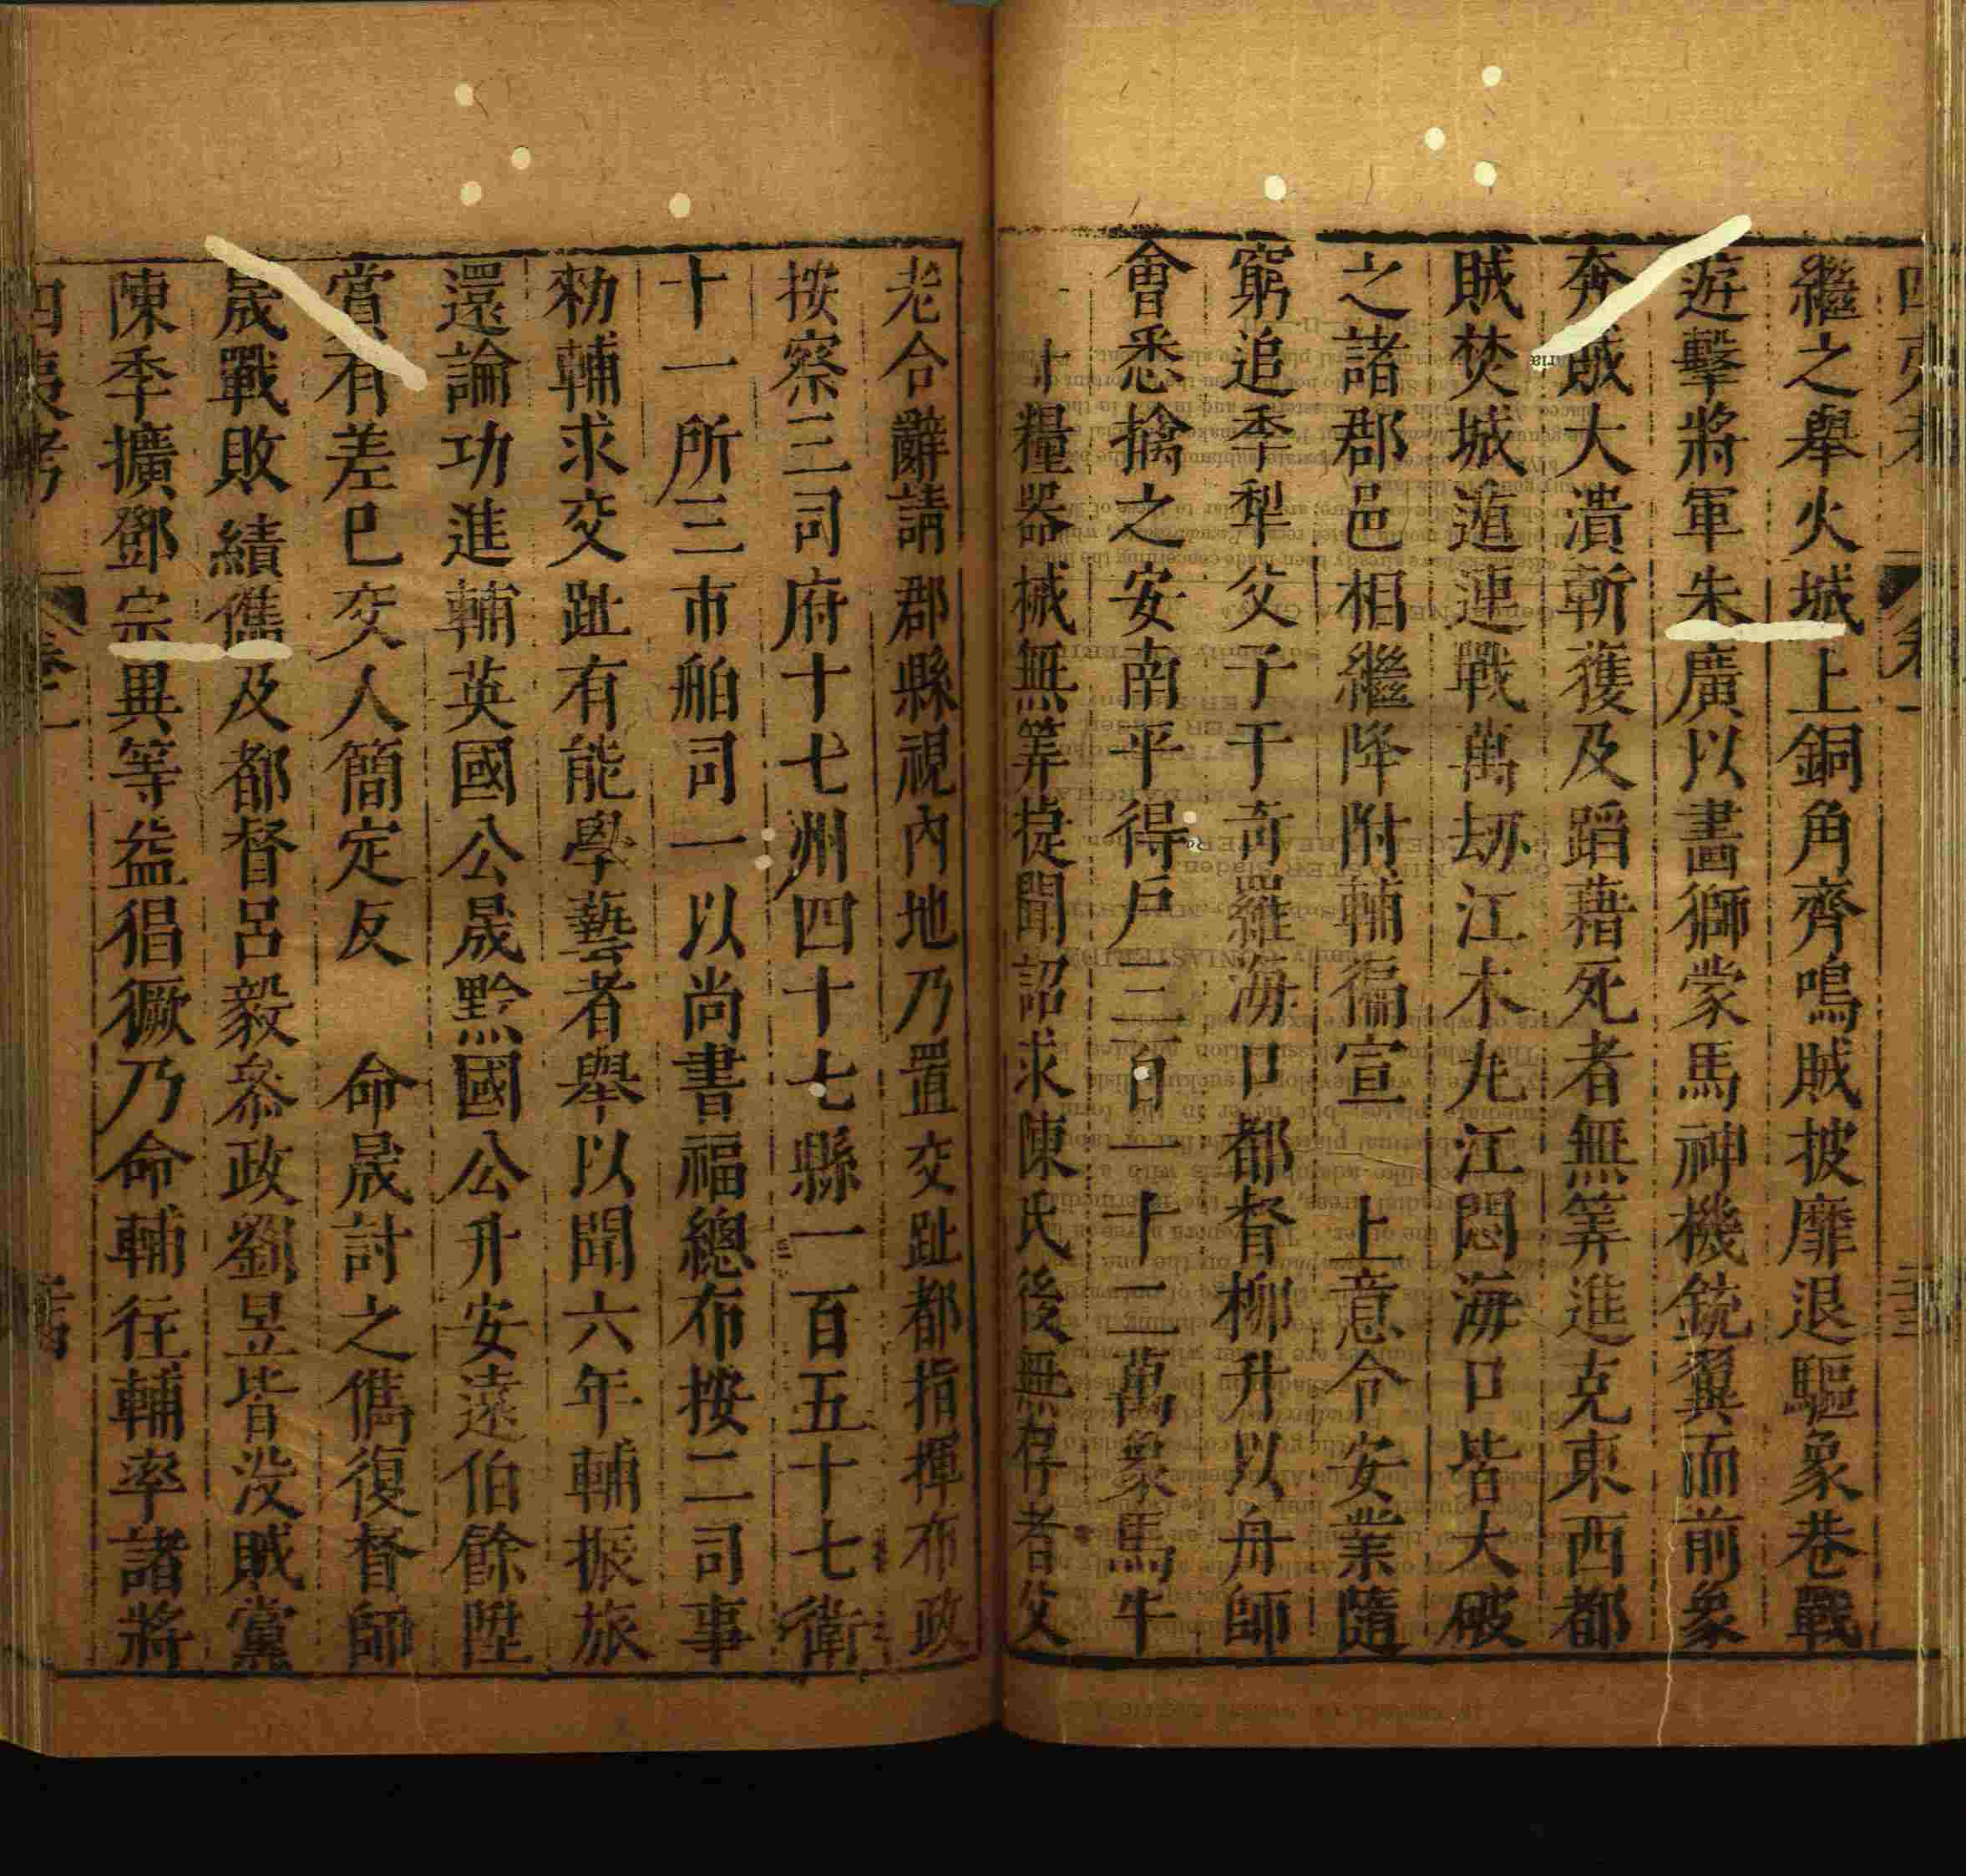 繼之舉火城上銅角齊鳴賊披靡退驅象巷戰
遊擊將軍朱廣以畵獅蒙馬神機銃翼而前象
奔賊大潰斬獲及蹈藉死者無筭進克東西都
賊焚城遁連戰萬刼江木丸江悶海口皆大破
之諸郡邑相繼降附輔徧宣　上意令安業隨
窮追季犁父子于奇羅海口都督柳升以舟師
會悉擒之安南平得戶三百一十二萬象馬牛
糧器械無筭捷聞詔求陳氏後無存者父
老合辭請郡縣視內地乃置交趾都指揮布政
按察三司府十七州四十七縣一百五十七衛
十一所三市舶司一以尚書福總布按二司事
勑輔求交趾有能學藝者舉以聞六年輔振旅
還論功進輔英國公晟黔國公升安遠伯餘陞
賞有差巳交人簡定反　命晟討之儁復督師
晟戰敗績儁及都督呂毅叅政劉昱皆沒賊黨
陳季擴鄧宗異等益猖獗乃命輔往輔率諸將
四夷考
卷二